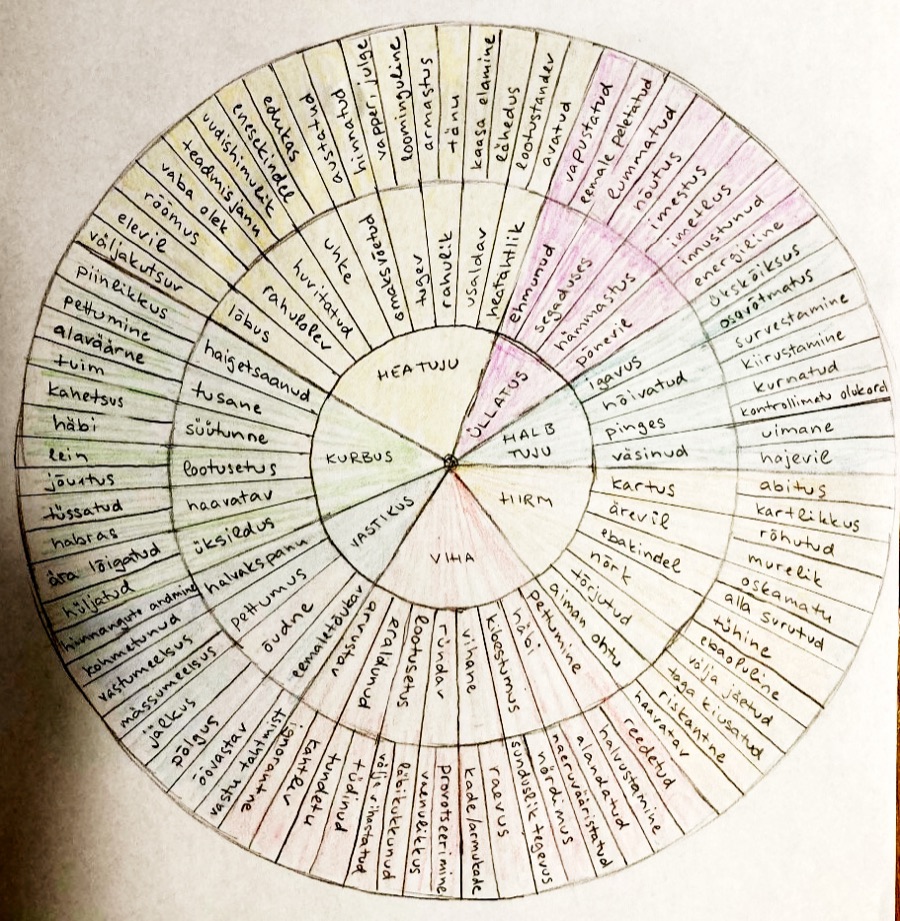 HEATUJU
ÜLLATUS
HALB
TUJU
HIRM
VIHA
VASTIKUS
KURBUS
lõbus
rahulolev
huvitatud
uhke
omaksvõetud
tugev
rahulik
usaldav
heatahtlik
ehmunud
segaduses
hämmastus
põnevil
igavus
hõivatud
pinges
väsinud
kartus
ärevil
ebakindel
nõrk
tõrjutud
aiman ohtu
pettumine
häbi
kibestumus
vihane
ründav
lootusetus
eraldunud
arvustav
eemaletõukav
õudne
pettumus
halvakspanu
üksildus
haavatav
lootusetus
süütunne
tusane
haigetsaanud
väljakutsuv
elevil
rõõmus
vaba olek
teadmisjanu
uudishimulik
enesekindel
edukas
austatud
hinnatud
vapper, julge
loominguline
armastus
tänu
kaasa elamine
lähedus
lootustandev
avatud
vapustatud
eemale peletatud
lummatud
nõutus
imestus
imetlus
innustunud
energiline
ükskõiksus
osavõtmatus
survestamine
kiirustamine
kurnatud
kontrollimatu olukord
uimane
hajevil
abitus
kartlikkus
rõhutud
murelik
oskamatu
alla surutud
tühine
ebaoluline
välja jäetud
taga kiusatud
riskantne
haavatav
reedetud
halvustamine
alandatud
naeruvääristatud
nördimus
sunduslik tegevus
raevus
kade/armukade
provotseerimine
vaenulikkus
läbikukkunud
välja vihastatud
tüdinud
tundetu
kahtlev
ignorantne
vastu tahtmist
öövastav
põlgus
jälkus
mässumeelsus
vastumeelsus
kohmetunud
hinnangute andmine
hüljatud
ära lõigatud
habras
tüssatud
jõuetus
lein
häbi
kahetsus
tuim
alaväärne
pettumine
piinlikkus